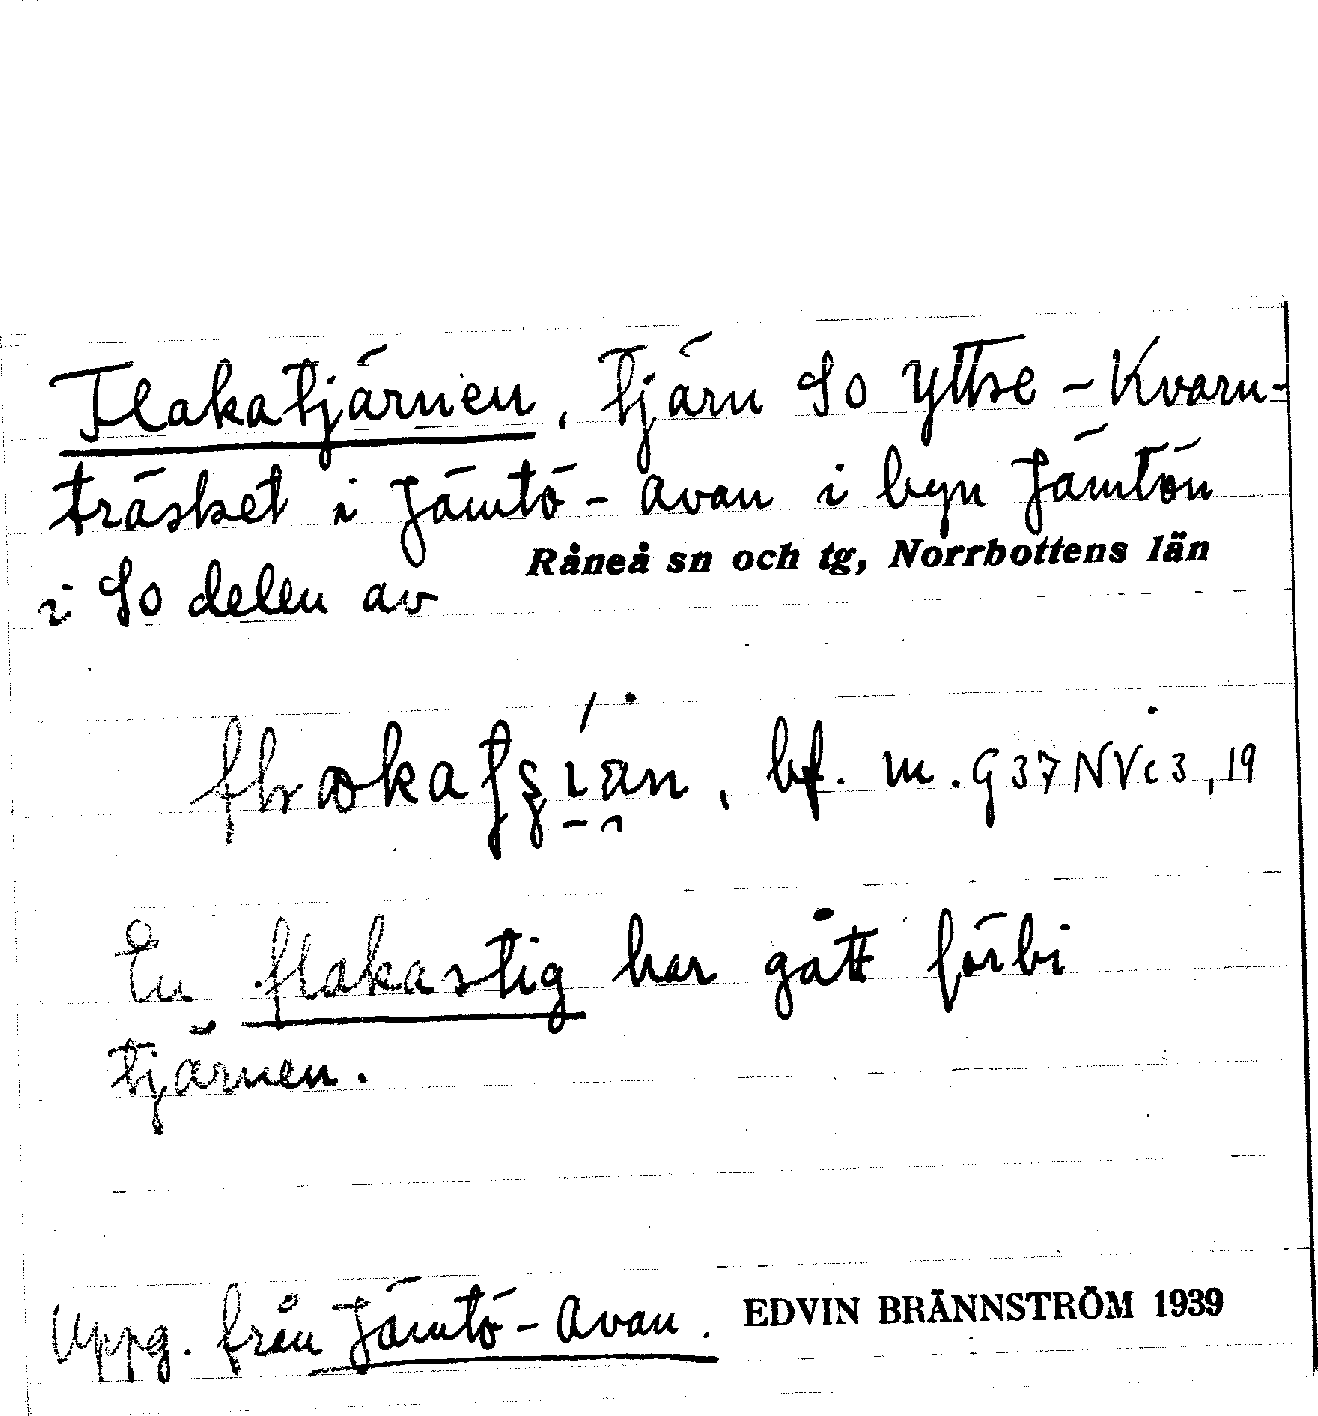 Flakatjärnen, tjärn So Yttre-Kvarn-
träsket i Jämtö-Avan i byn Jämtön
Råneå sn och tg, Norrbottens län
i So delen av
bf. m. G37NVc3,19
En flakastig har gått förbi
tjärnen.
Uppg. från Jämtö-Avan.
EDVIN BRÄNNSTRÖM 1939